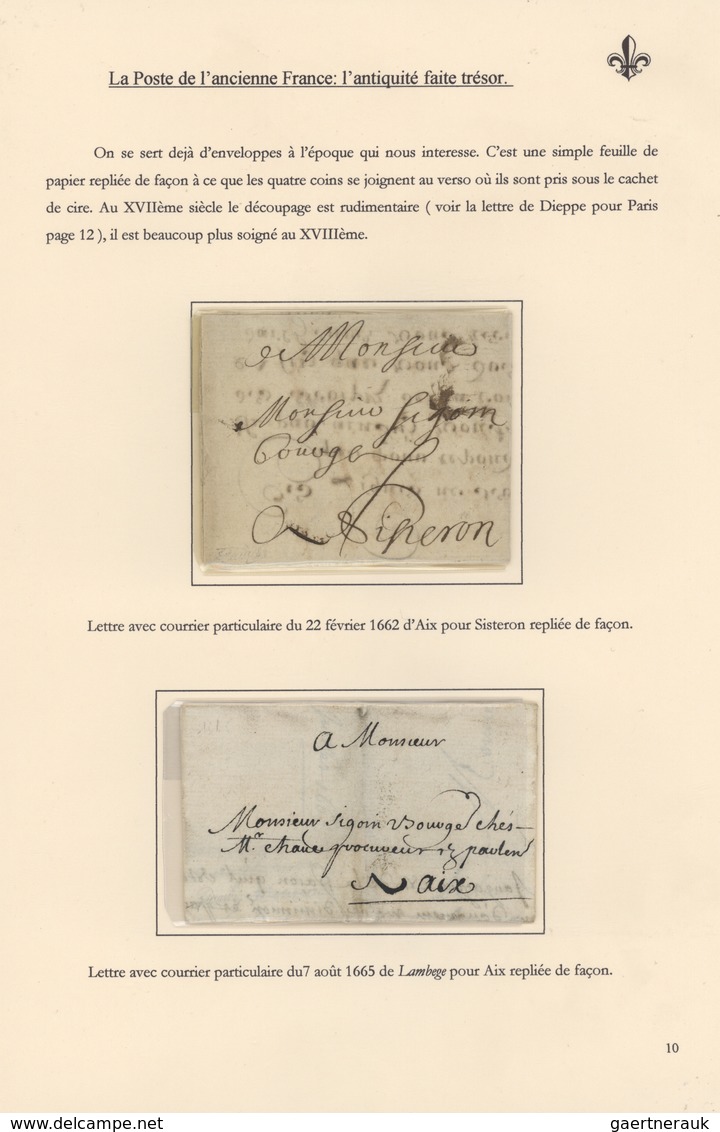 La Poste de l'ancienne France: l'antiquité faite trésor.
On se sert dejà d'enveloppes à l'époque qui nous interesse. C'est une simple feuille de
papier repliée de façon à ce que les quatre coins se joignent au verso où ils sont pris sous le cachet
de cire. Au XVIIème siècle le découpage est rudimentaire ( voir la lettre de Dieppe pour Paris
page 12 ), il est beaucoup plus soigné au XVIIIème.
Monsieur
Monsieur Sigoin
A Sisteron
Lettre avec courrier particulaire du 22 février 1662 d'Aix pour Sisteron repliée de façon.
A Monsieur
Monsieur Sigoin Bouvge chés
Mr. procureur
A aix
Lettre avec courrier particulaire du7 août 1665 de Lambege pour Aix repliée de façon.
10
delcampe.net
gaertnerauk